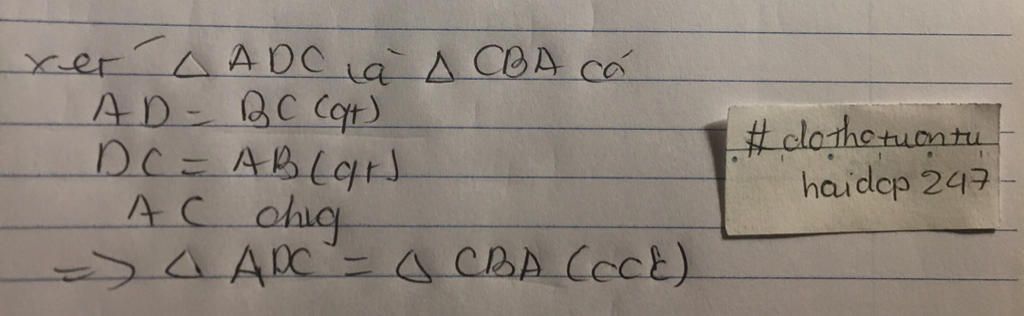 xét △ ADC và △ CBA có
AD = BC (gt)
DC = AB (gt)
AC chug
=> △ ADC = △ CBA (ccc)
haidcp 247